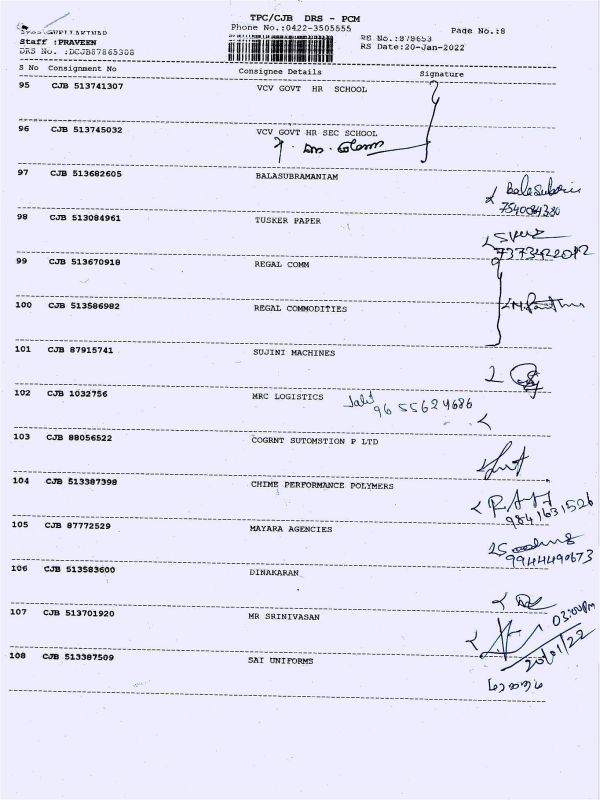 TPC/CJB DRS - PCM
Phone No.:0422-3505555
Page No.:8
Staff :PRAVEEN
RS No.:878653
DRS No. :DCJB87865308
RS Date:20-Jan-2022
S No Consignment No Consignee Details Signature
95 CJB 513741307 VCV GOVT HR SCHOOL
96 CJB 513745032 VCV GOVT HR SEC SCHOOL
97 CJB 513682605 BALASUBRAMANIAM
7540084380
98 CJB 513084961 TUSKER PAPER
7373422012
99 CJB 513670918 REGAL COMM
100 CJB 513586982 REGAL COMMODITIES
101 CJB 87915741 SUJINI MACHINES
102 CJB 1032756 MRC LOGISTICS
9655624686
103 CJB 88056522 COGRNT SUTOMSTION P LTD
104 CJB 513387398 CHIME PERFORMANCE POLYMERS
9841631526
105 CJB 87772529 MAYARA AGENCIES
9944490673
106 CJB 513583600 DINAKARAN
107 CJB 513701920 MR SRINIVASAN
03:00 Pm
20/01/22
108 CJB 513387509 SAI UNIFORMS